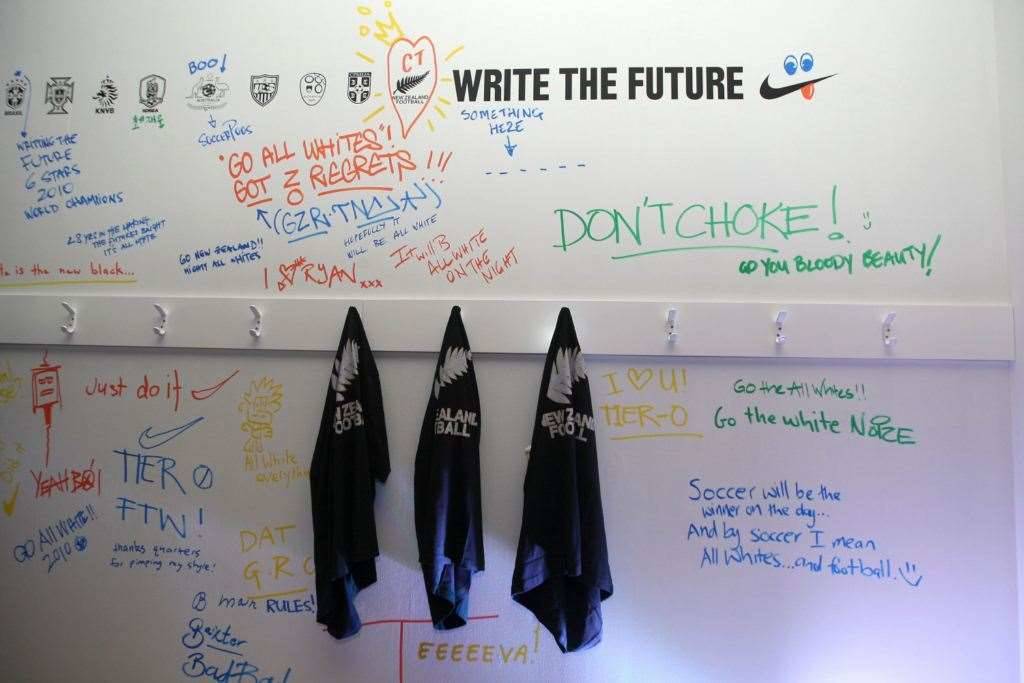 BOO!
BRASIL
KNVB
KOREA
AUSTRALIA
CT
NEW ZEALAND
FOOTBALL
WRITE THE FUTURE
SOCCEROOS
SOMETHING
HERE
WRITING THE
FUTURE
6 STARS
2010
WORLD CHAMPIONS
"GO ALL WHITES"!
GOT NO REGRETS!!!
HOPEFULLY IT
WILL BE ALL WHITE
28 YRS IN THE MAKING
THE FUTURES BRIGHT
IT'S ALL WHITE
GO NEW ZEALAND!!
MIGHTY ALL WHITES
is the new black...
I RYAN xxx
IT will B
ALL WHITE
ON THE
NIGHT
DON'T CHOKE!
GO YOU BLOODY BEAUTY!
Just do it
YEAH BOI
GO ALL WHITE!!
2010
TIER 0
FTW!
thanks quarters
for pimping my style!
All White
everything
DAT
G.R.C
B man RULES!
Baxter
BadBoy
EW ZEA
OOTBA
EALAND
TBALL
NEW ZEALAND
FOO LL
EEEEEVA!
I ♡ U!
TIER-O
Go the All Whites!!
Go the white NOIZE
Soccer will be the
winner on the day...
And by soccer I mean
All Whites...and football.